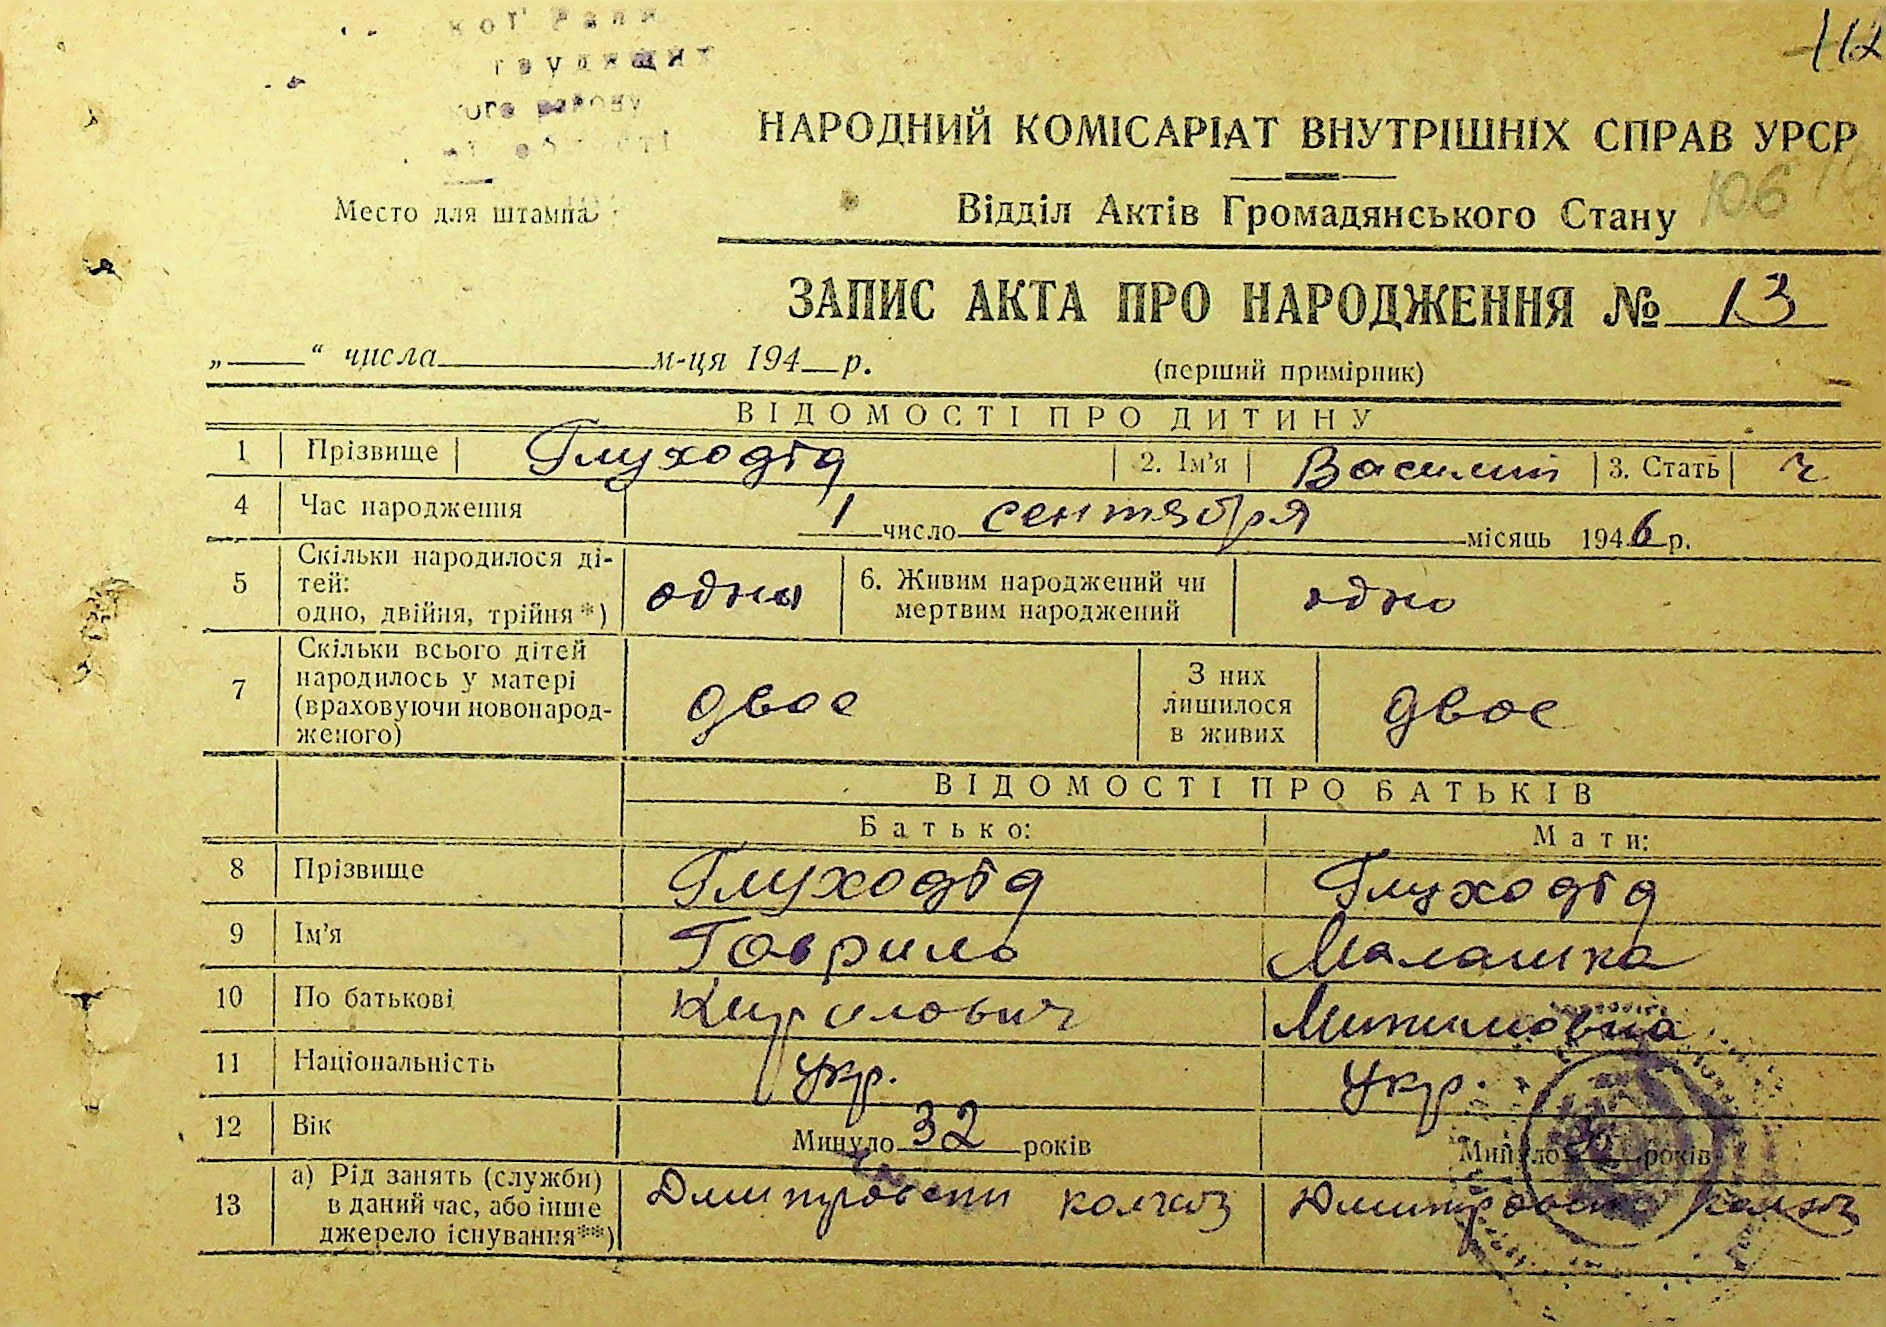 112
НАРОДНИЙ КОМІСАРІАТ ВНУТРІШНІХ СПРАВ УРСР
Место для штампа
Відділ Актів Громадянського Стану 106
ЗАПИС АКТА ПРО НАРОДЖЕННЯ № 13
„ “ числа м-ця 194 р. (перший примірник)
ВІДОМОСТІ ПРО ДИТИНУ
1 Прізвище Глуходід 2. Ім'я Василий 3. Стать ч
4 Час народження 1 число сентября місяць 1946 р.
5 Скільки народилося ді-
тей:
одно, двійня, трійня*) одно 6. Живим народжений чи
мертвим народжений одно
7 Скільки всього дітей
народилось у матері
(враховуючи новонарод-
женого) двое З них
лишилося
в живих двое
ВІДОМОСТІ ПРО БАТЬКІВ
Батько: Мати:
8 Прізвище Глуходід Глуходід
9 Ім'я Гаврило Малашка
10 По батькові Кирилович
11 Національність Укр. Укр.
12 Вік Минуло 32 років Минуло років
13 а) Рід занять (служби)
в даний час, або інше
джерело існування**)